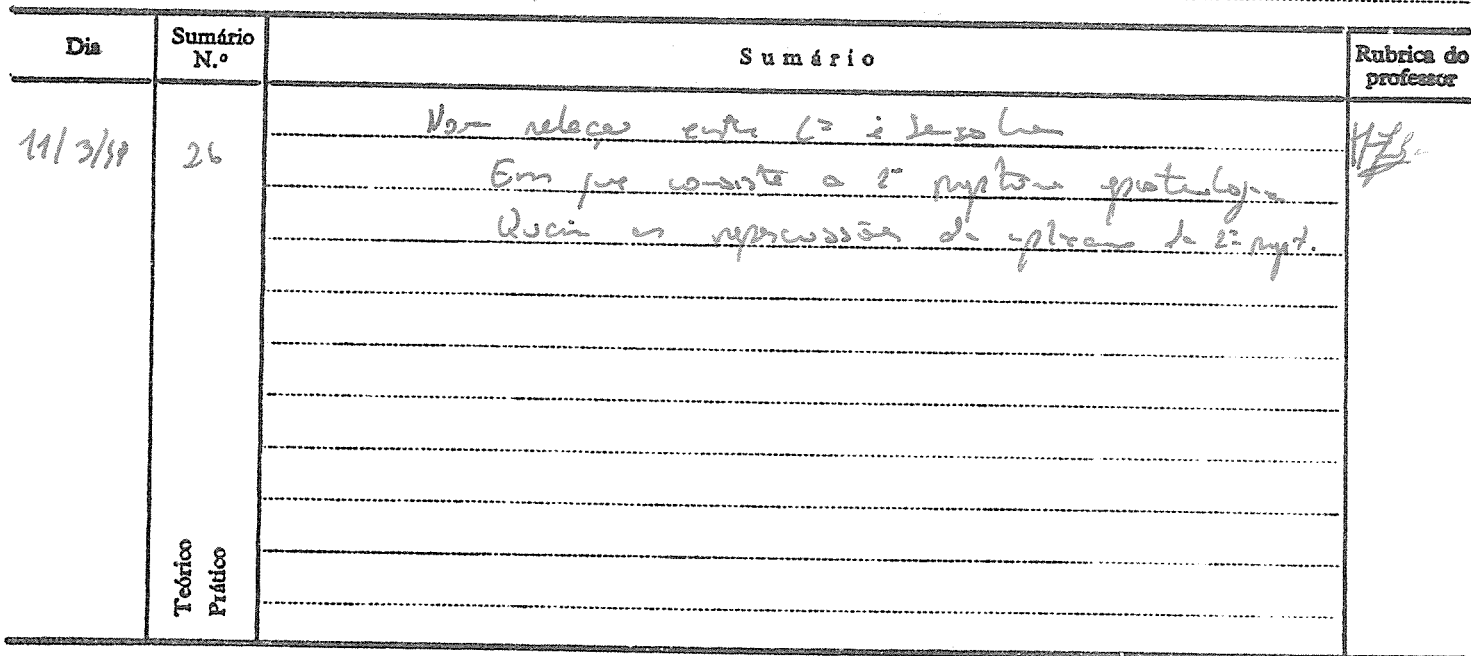 Dia
Sumário N.º
Sumário
Rubrica do professor
11/3/98
26
Nova relação entre Cª e senso
Em que consiste a 2ª ruptura epistemológica
Quais as repercussões da aplicação da 2ª rupt.
Teórico
Prático